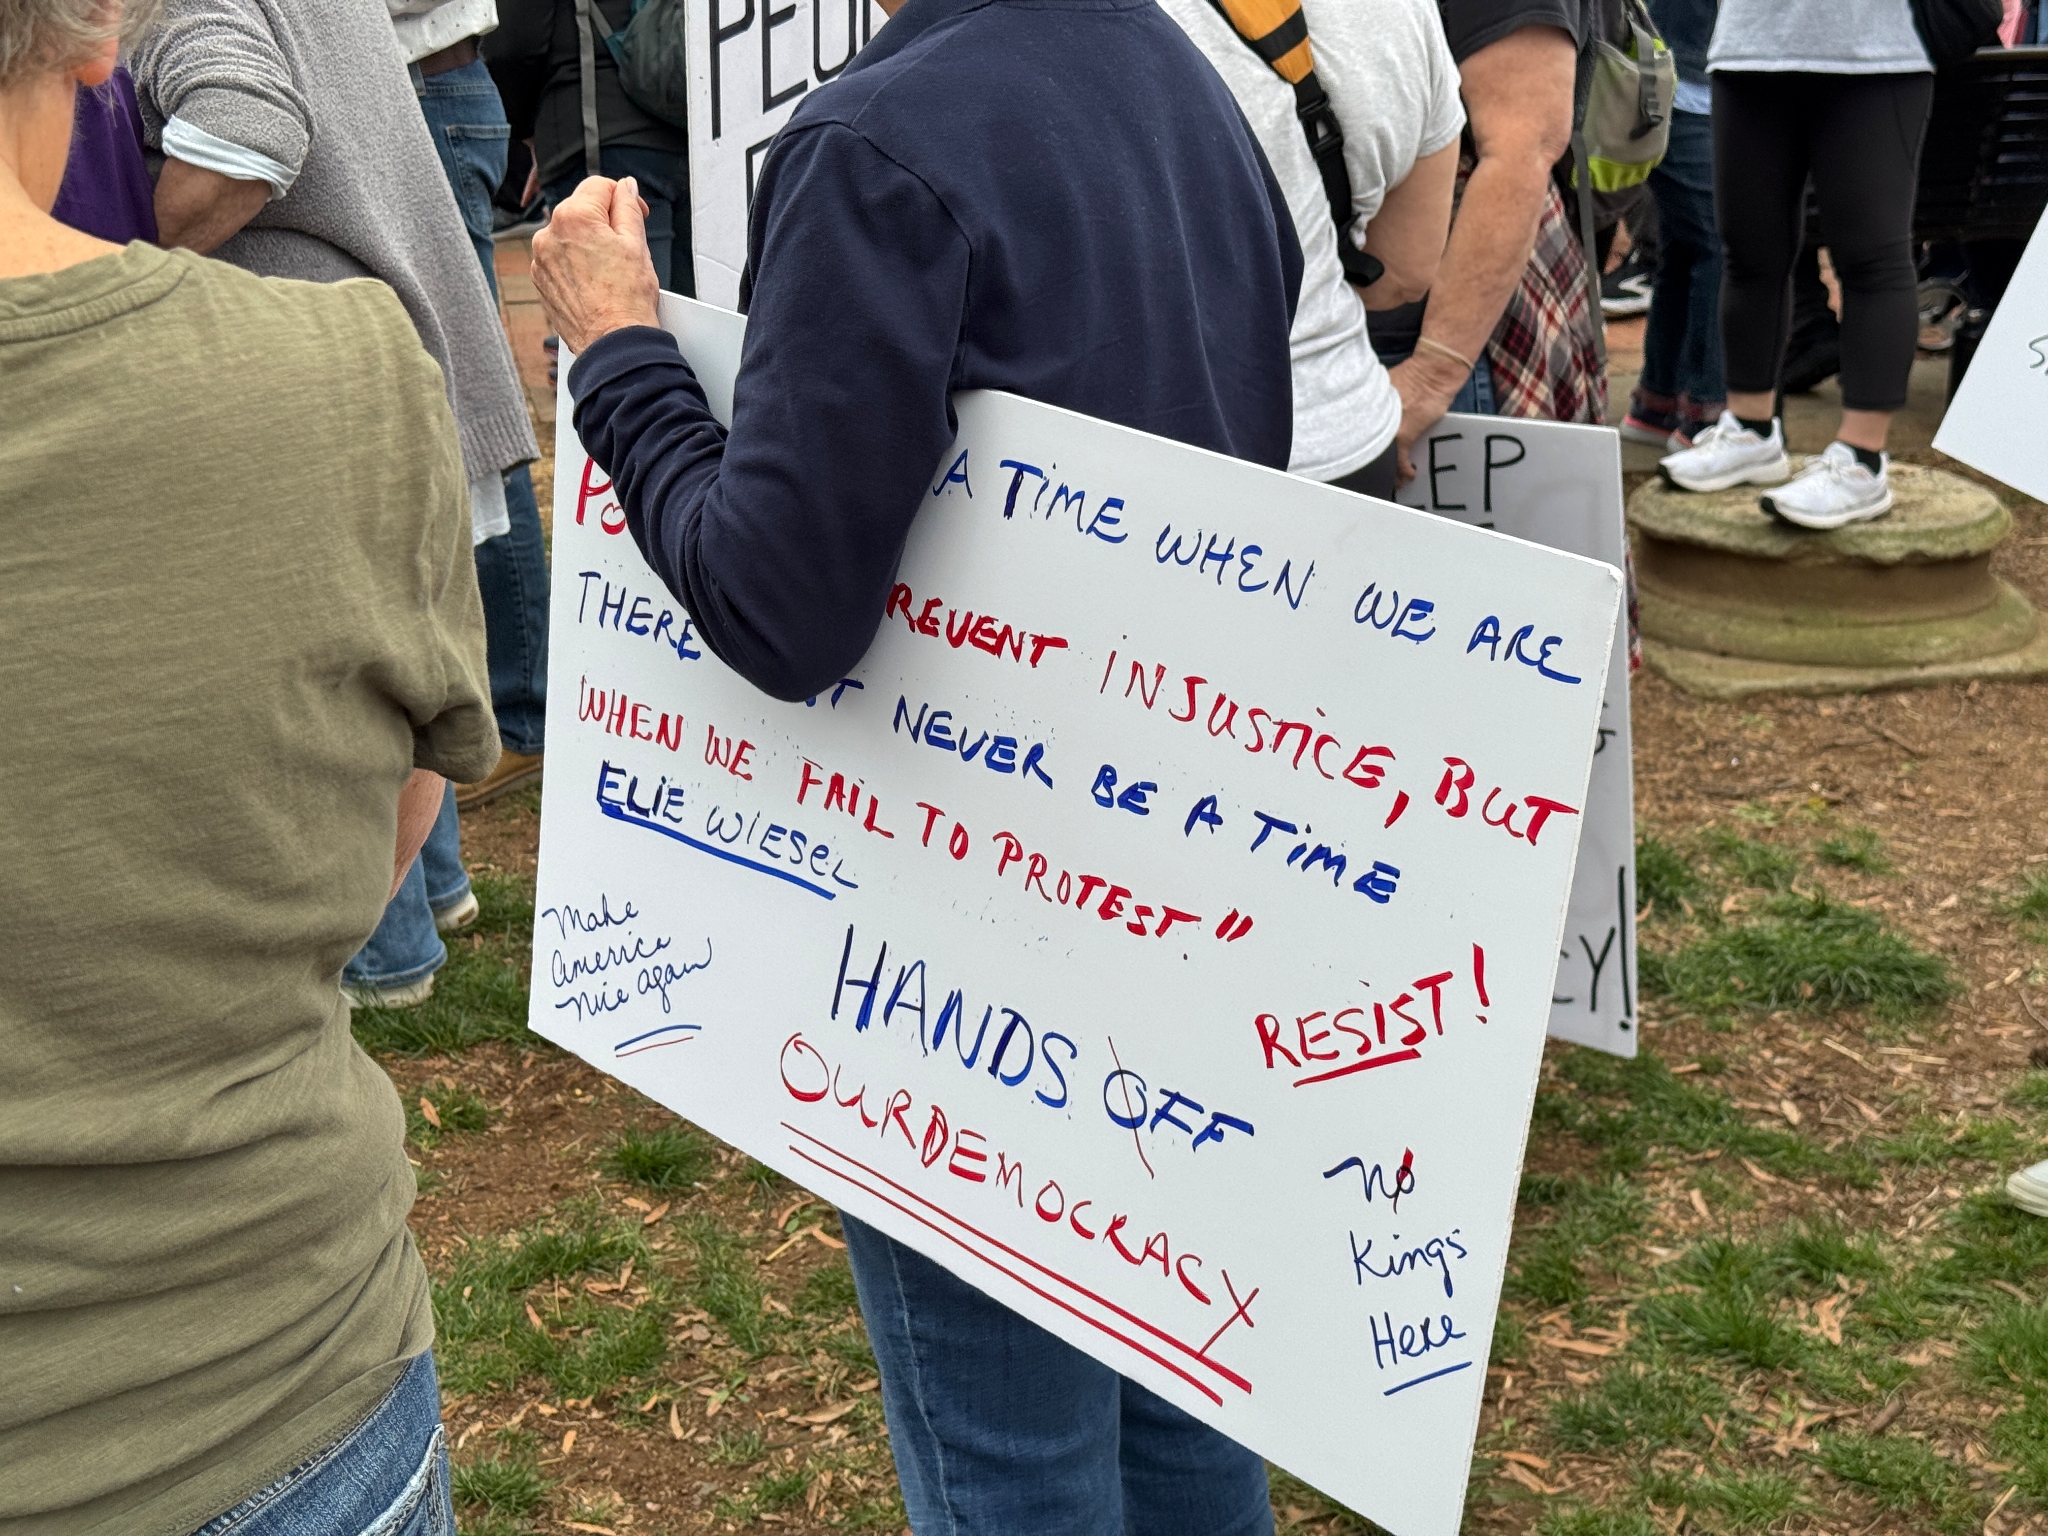 PEOP
A TIME WHEN WE ARE
PO REVENT INJUSTICE, BUT
THERE ST NEVER BE A TIME
WHEN WE FAIL TO PROTEST."
ELIE WIESEL
Make
America
Nice Again
HANDS OFF
OURDEMOCRACY
RESIST!
No
Kings
Here
EEP
CY!